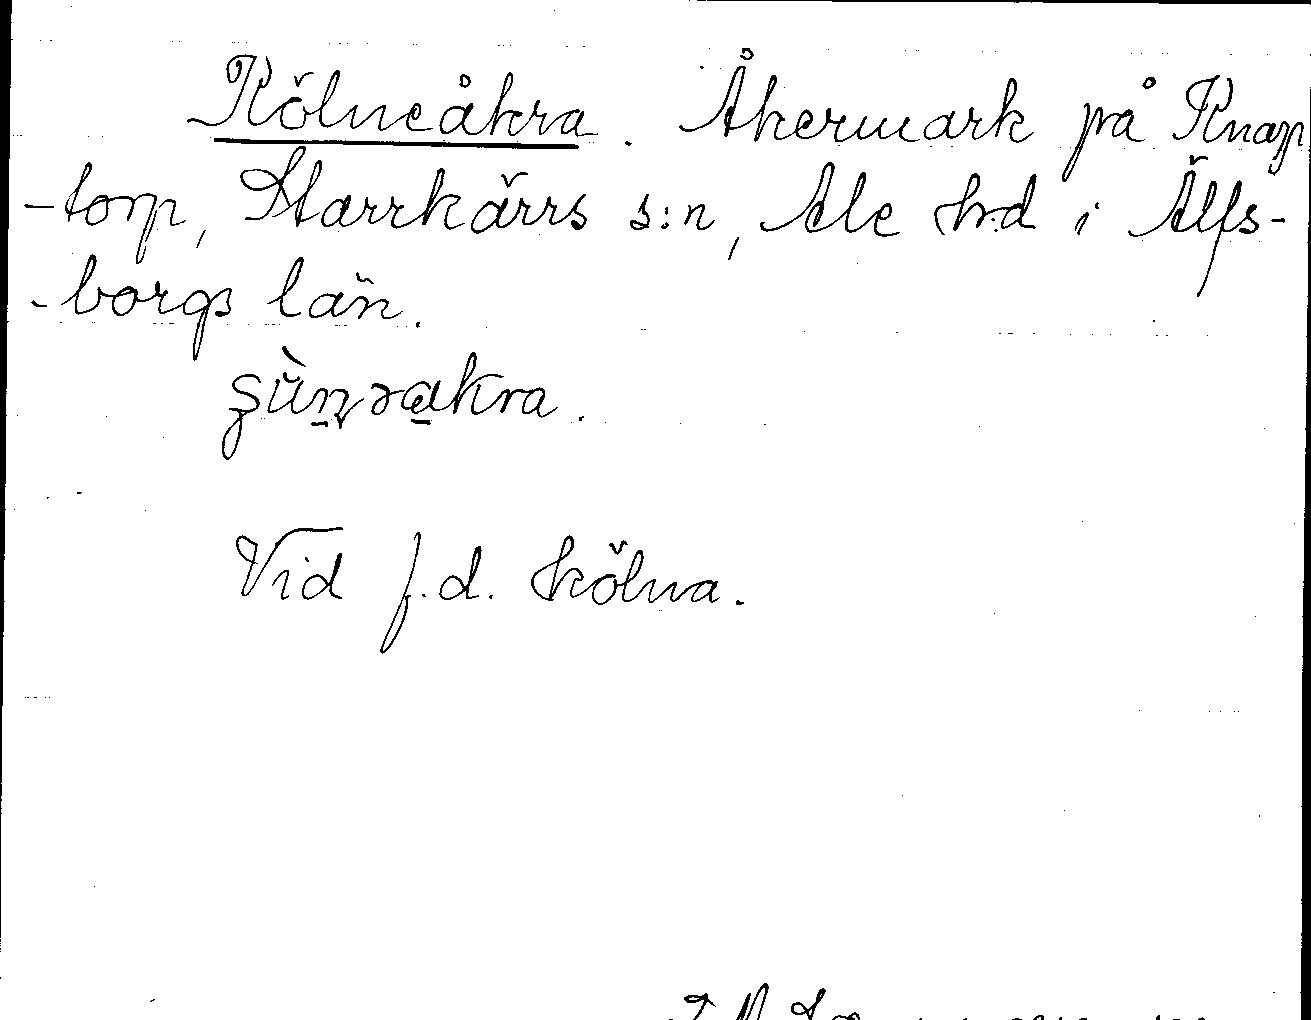 Kölneåkra. Åkermark på Knap
-torp, Starrkärrs s:n, Ale hd i Älfs-
-borgs län.
Vid f.d. kölna.